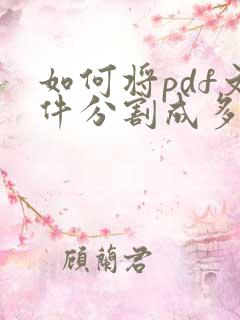 如何将pdf文
件分割成多
顾兰君